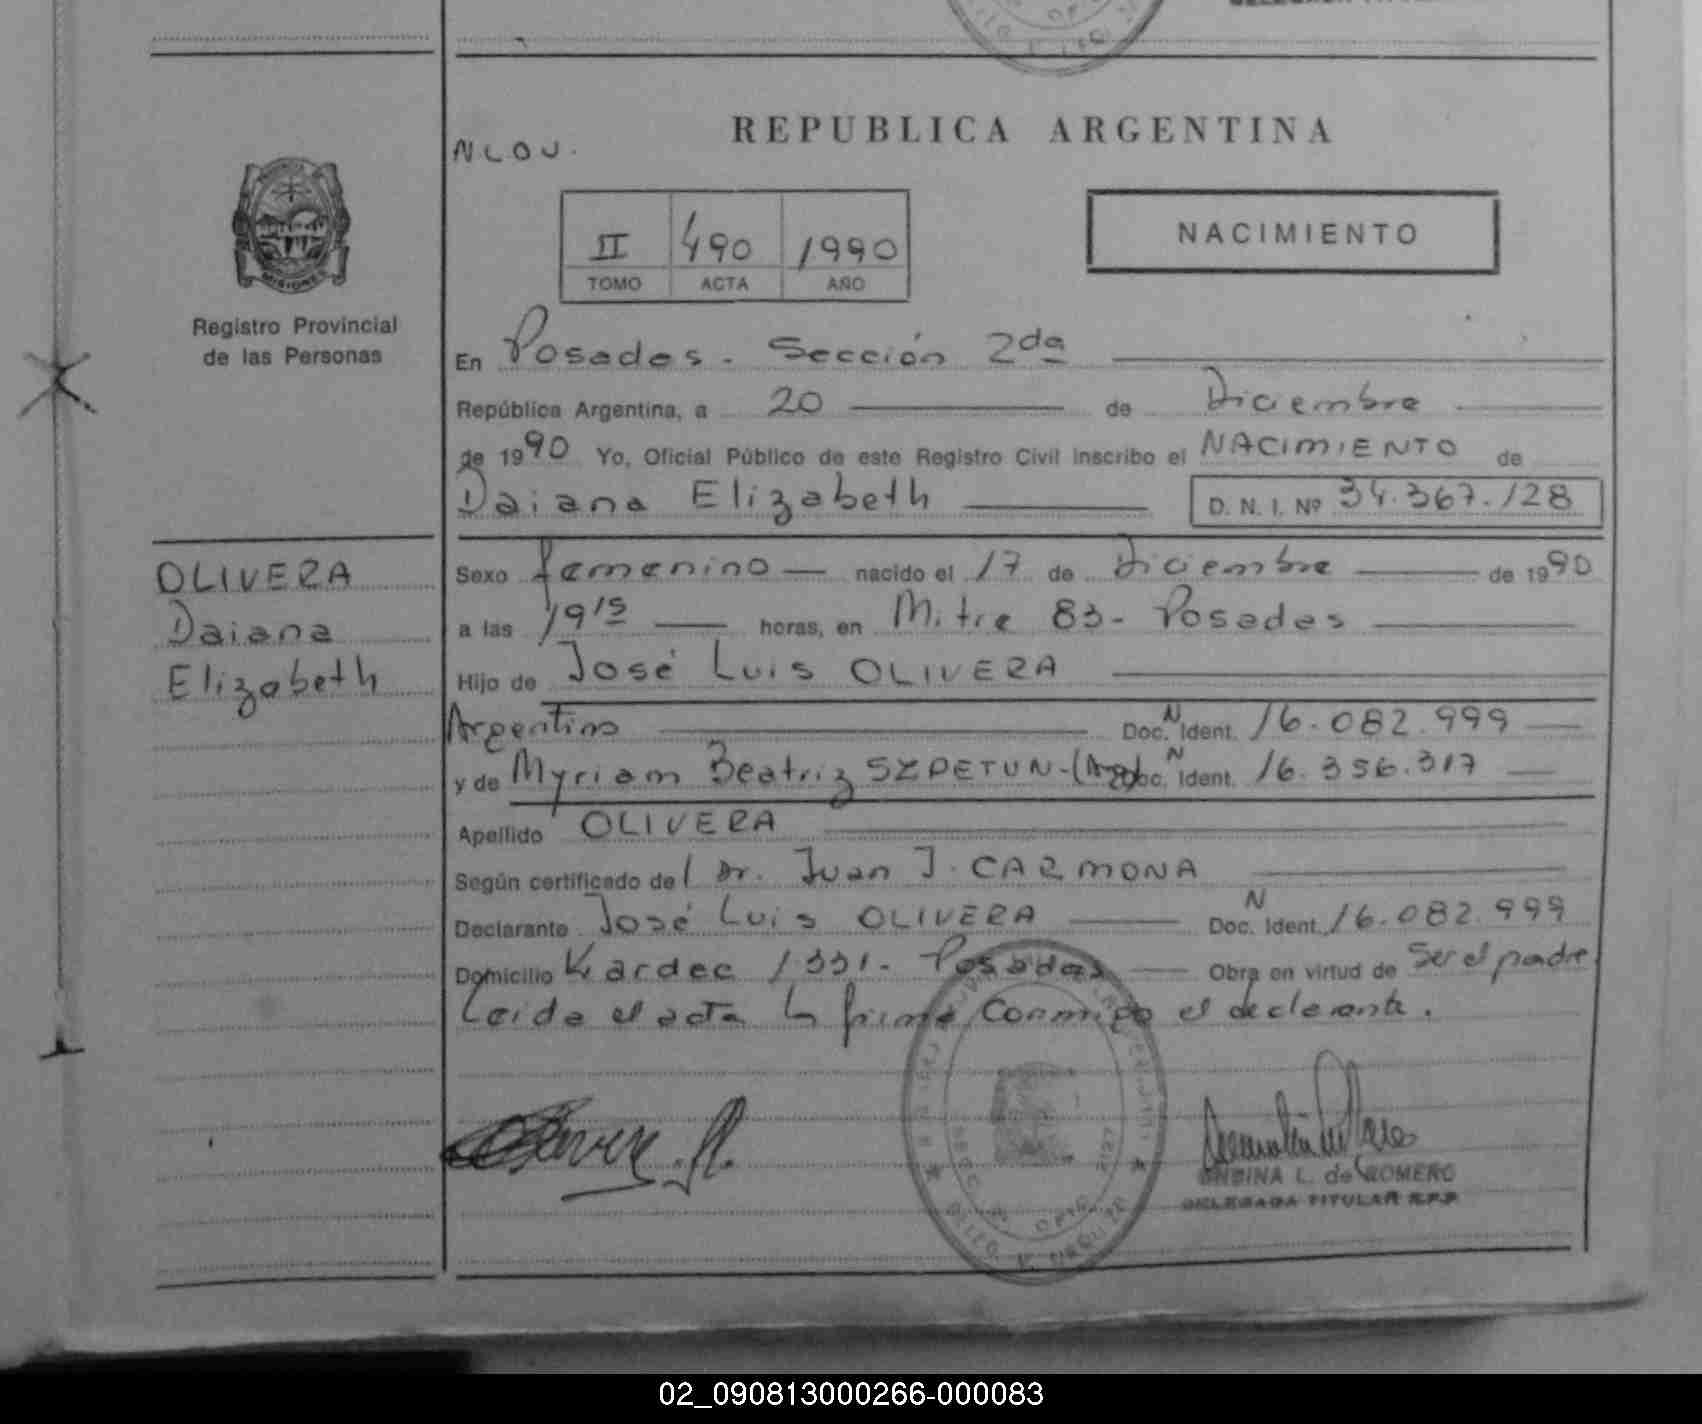 REPUBLICA ARGENTINA
NLOU.
II 490 1990
TOMO ACTA AÑO
NACIMIENTO
MISIONES
Registro Provincial
de las Personas
En Posadas - Sección 2da
República Argentina, a 20 de Diciembre
de 1990 Yo, Oficial Público de este Registro Civil inscribo el NACIMIENTO de
Daiana Elizabeth D. N. I. Nº 34.367.128
OLIVERA
Daiana
Elizabeth
Sexo femenino nacido el 17 de Diciembre de 1990
a las 19 15 horas, en Mitre 83 - Posadas
Hijo de José Luis OLIVERA
Argentino Doc. N Ident. 16.082.999
y de Myriam Beatriz - (Arg) Doc. N Ident. 16.356.317
Apellido OLIVERA
Según certificado del Dr. Juan J. CARMONA
Declarante José Luis OLIVERA Doc. N Ident. 16.082.999
Domicilio Kardec 1331 - Posadas Obra en virtud de Ser el padre
Leida el acta la firma conmigo el declarante.
L. de ROMERO
DELEGADA TITULAR R.P.P.
02_090813000266-000083